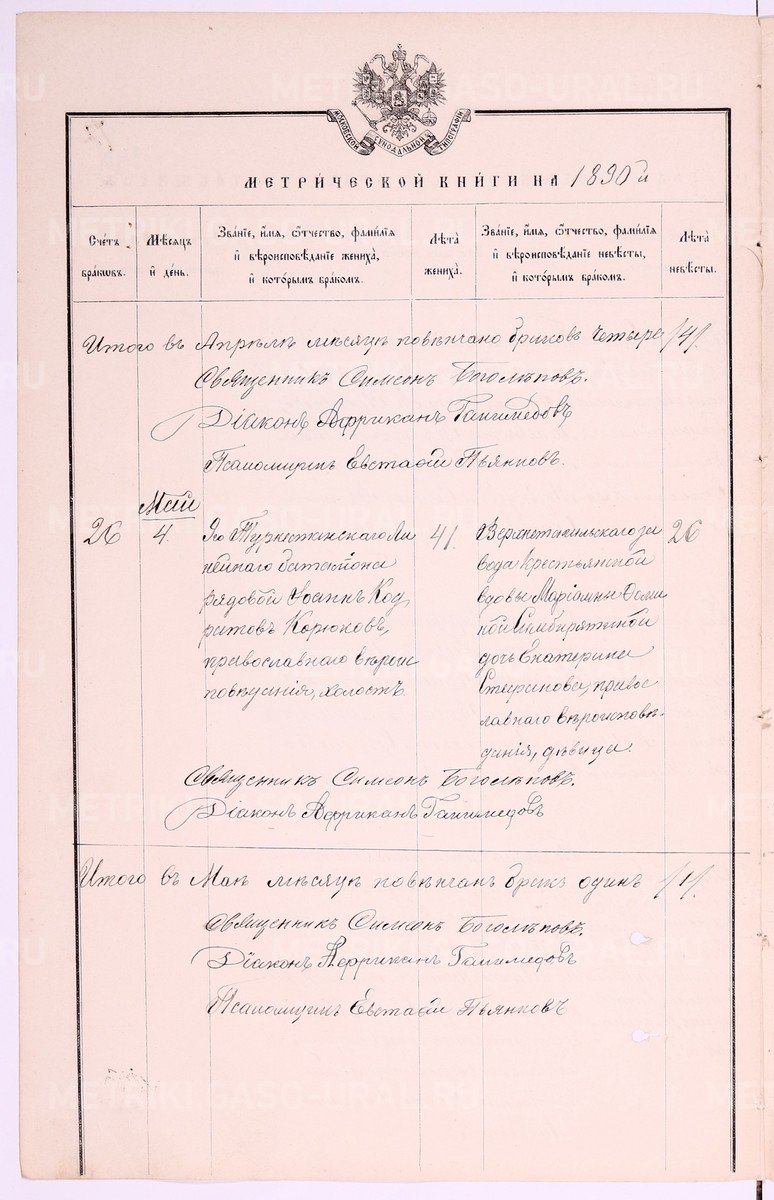 МОСКОВСКОЙ СѴНОДАЛЬНОЙ ТИПОГРАФІИ
МЕТРИ́ЧЕСКОЙ КНИ́ГИ НА 1890 й
Сче́тъ бра́кѡвъ.
Мѣ́сѧцъ и҆ де́нь.
Зва́нїе, и҆́мѧ, ѻ҆́тчество, фамѝлїѧ и҆ вѣроисповѣ́данїе жениха̀, и҆ кото́рымъ бра́комъ.
Лѣ́та жениха̀.
Зва́нїе, и҆́мѧ, ѻ҆́тчество, фамѝлїѧ и҆ вѣроисповѣ́данїе невѣ́сты, и҆ кото́рымъ бра́комъ.
Лѣ́та невѣ́сты.
Итого въ Апрѣлѣ мѣсяцѣ повѣнчано браковъ четыре /4/.
Священникъ Симеонъ Боголѣповъ.
Діаконъ Африканъ Ганимедовъ
Псаломщикъ Евстафій Пьянковъ.
Май
26
4
Туркестанскаго Ли
нейнаго баталіона
рядовой Іоаннъ Код
ратовъ Корюковъ,
православнаго вѣрои
повѣданія, холостъ
41.
Верхнетагильскаго за
вода крестьянской
вдовы Маріамны Ѳоми
ной Симбирятиной
дочь Екатерина
Стефанова, правос
лавнаго вѣроисповѣ-
данія, дѣвица.
26
Священникъ Симеонъ Боголѣповъ.
Діаконъ Африканъ Ганимедовъ
Итого въ Маѣ мѣсяцѣ повѣнчанъ бракъ одинъ /1/.
Священникъ Симеонъ Боголѣповъ.
Діаконъ Африканъ Ганимедовъ
Псаломщикъ Евстафій Пьянковъ
METRIKI.GASO-URAL.RU